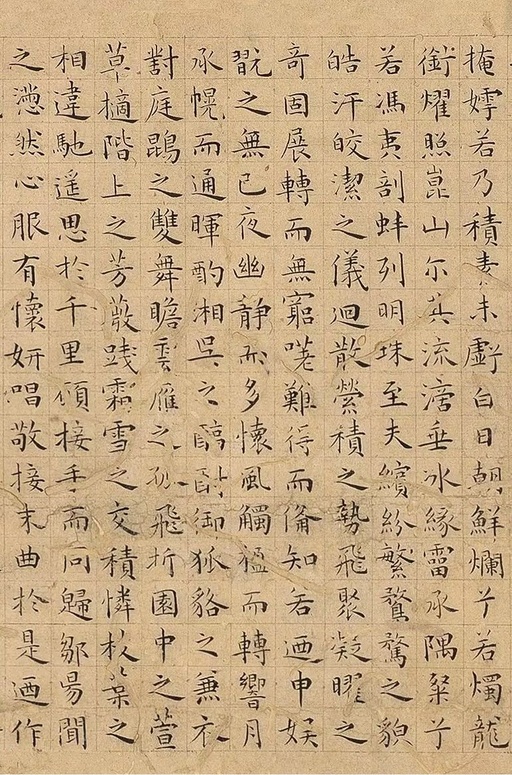 掩嫮若乃積素未虧白日朝鮮爛兮若燭龍
銜燿照崑山尒其流滴垂冰緣霤承隅粲兮
若馮夷剖蚌列明珠至夫繽紛繁騖驚之貌
皓汗皎潔之儀迴散縈積之勢飛聚凝曜之
奇固展轉而無窮嗟難得而俻知若迺申娛
翫之無已夜幽靜而多懷風觸楹而轉響月
承幌而通暉酌湘吳之醇酎御狐貉之兼衣
對庭鵾之雙舞瞻雲雁之孤飛折園中之萱
草摘階上之芳薇踐霜雪之交積憐枝葉之
相違馳遥思於千里願接手而同歸鄒昜聞
之懣然心服有懷妍唱敬接末曲於是迺作